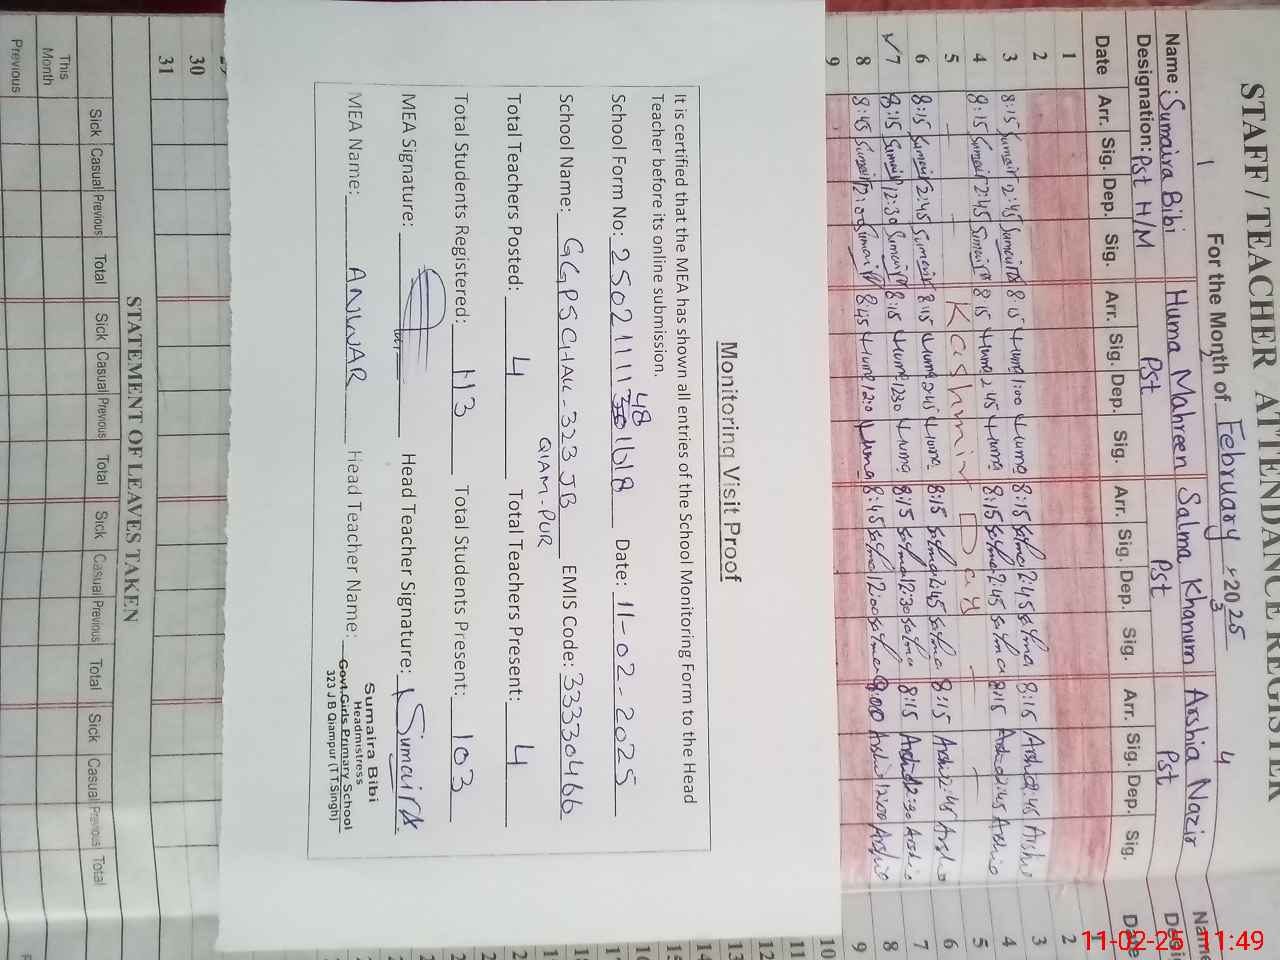 STAFF / TEACHER ATTENDANCE REGISTER
For the Month of February 2025
1 2 3 4
Name : Sumaira Bibi Huma Mahreen Salma Khanum Arshia Nazir Name
Designation: Pst H/M Pst Pst Pst
Date Arr. Sig. Dep. Sig. Arr. Sig. Dep. Sig. Arr. Sig. Dep. Sig. Arr. Sig. Dep. Sig. Date
1
2
3 8:15 Sumaira 2:45 Sumaira 8:15 Huma 1:00 Huma 8:15 Salma 2:45 Salma 8:15 Arshia 2:45 Arshia
4 8:15 Sumaira 2:45 Sumaira 8:15 Huma 2:45 Huma 8:15 Salma 2:45 Salma 8:15 Arshia 2:45 Arshia
5 Kashmir Day
6 8:15 Sumaira 2:45 Sumaira 8:15 Huma 2:45 Huma 8:15 Salma 2:45 Salma 8:15 Arshia 2:45 Arshia
7 8:15 Sumaira 12:30 Sumaira 8:15 Huma 1230 Huma 8:15 Salma 12:30 Salma 8:15 Arshia 12:30 Arshia
8 8:45 Sumaira 12:00 Sumaira 8:45 Huma 12:0 Huma 8:45 Salma 12:00 Salma 8:00 Arshia Arshia
9
Monitoring Visit Proof
It is certified that the MEA has shown all entries of the School Monitoring Form to the Head
Teacher before its online submission.
School Form No: Date: 11-02-2025
School Name: GGPS CHAK-323 JB EMIS Code: 33330466
QIAM-PUR
Total Teachers Posted: 4 Total Teachers Present: 4
Total Students Registered: 113 Total Students Present: 103
MEA Signature: Head Teacher Signature: Sumaira
MEA Name: ANWAR Head Teacher Name:
Sumaira Bibi
Headmistress
Govt.Girls Primary School
323 J B Qiampur (T.T.Singh)
30
31
STATEMENT OF LEAVES TAKEN
Sick Casual Previous Total Sick Casual Previous Total Sick Casual Previous Total Sick Casual Previous Total
This
Month
Previous
11-02-25 11:49